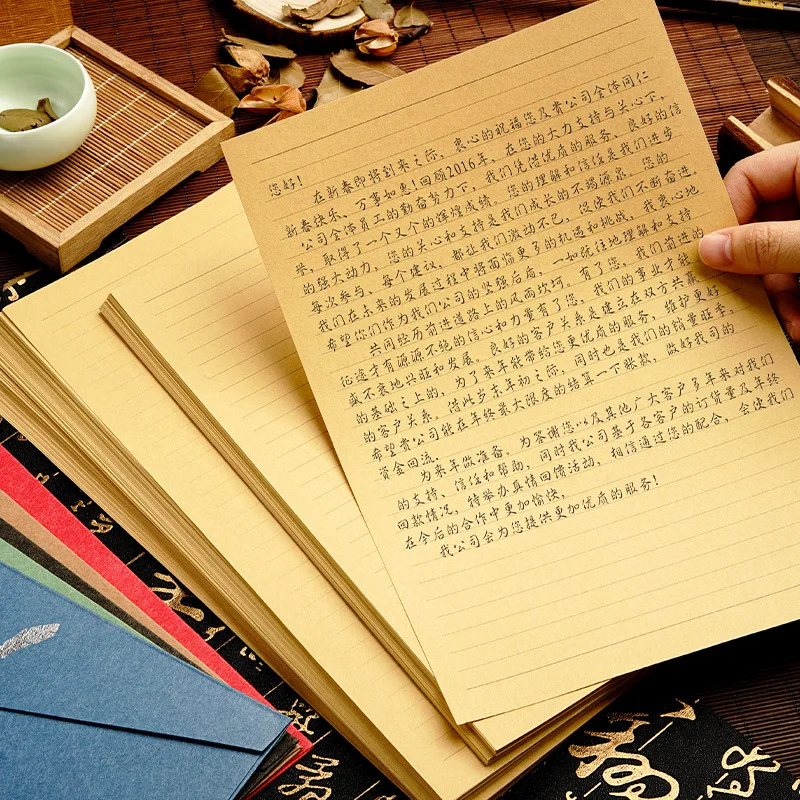 您好!
在新春即将到来之际, 衷心的祝福您及贵公司全体同仁
新春快乐、万事如意!回顾2016年, 在您的大力支持与关心下,
公司全体员工的勤奋努力下, 我们凭借优质的服务、良好的信
誉, 取得了一个又个的辉煌成绩。您的理解和信任是我们进步
的强大动力, 您的关心和支持是我们成长的不竭源泉。您的
每次参与、每个建议, 都让我们激动不已, 促使我们不断奋进。
我们在未来的发展过程中将面临更多的机遇和挑战, 我衷心地
希望您们作为我们公司的坚强后盾, 一如既往地理解和支持
共同经历前进道路上的风雨坎坷。有了您, 我们前进的
征途才有源源不绝的信心和力量有了您, 我们的事业才能
或不衰地兴旺和发展。良好的客户关系是建立在双方共赢
的基础之上的, 为了来年能带给您更优质的服务, 维护更好
的客户关系。借此岁末年初之际, 同时也是我们的销量旺季,
希望贵公司能在年终最大限度的结算一下账款, 做好我司的
资金回流,
为来年做准备。为答谢您以及其他广大客户多年来对我们
的支持、信任和帮助, 同时我公司基于各客户的订货量及年终
回款情况, 特举办真情回馈活动, 相信通过您的配合, 会使我们
在今后的合作中更加愉快,
我公司会为您提供更加优质的服务!